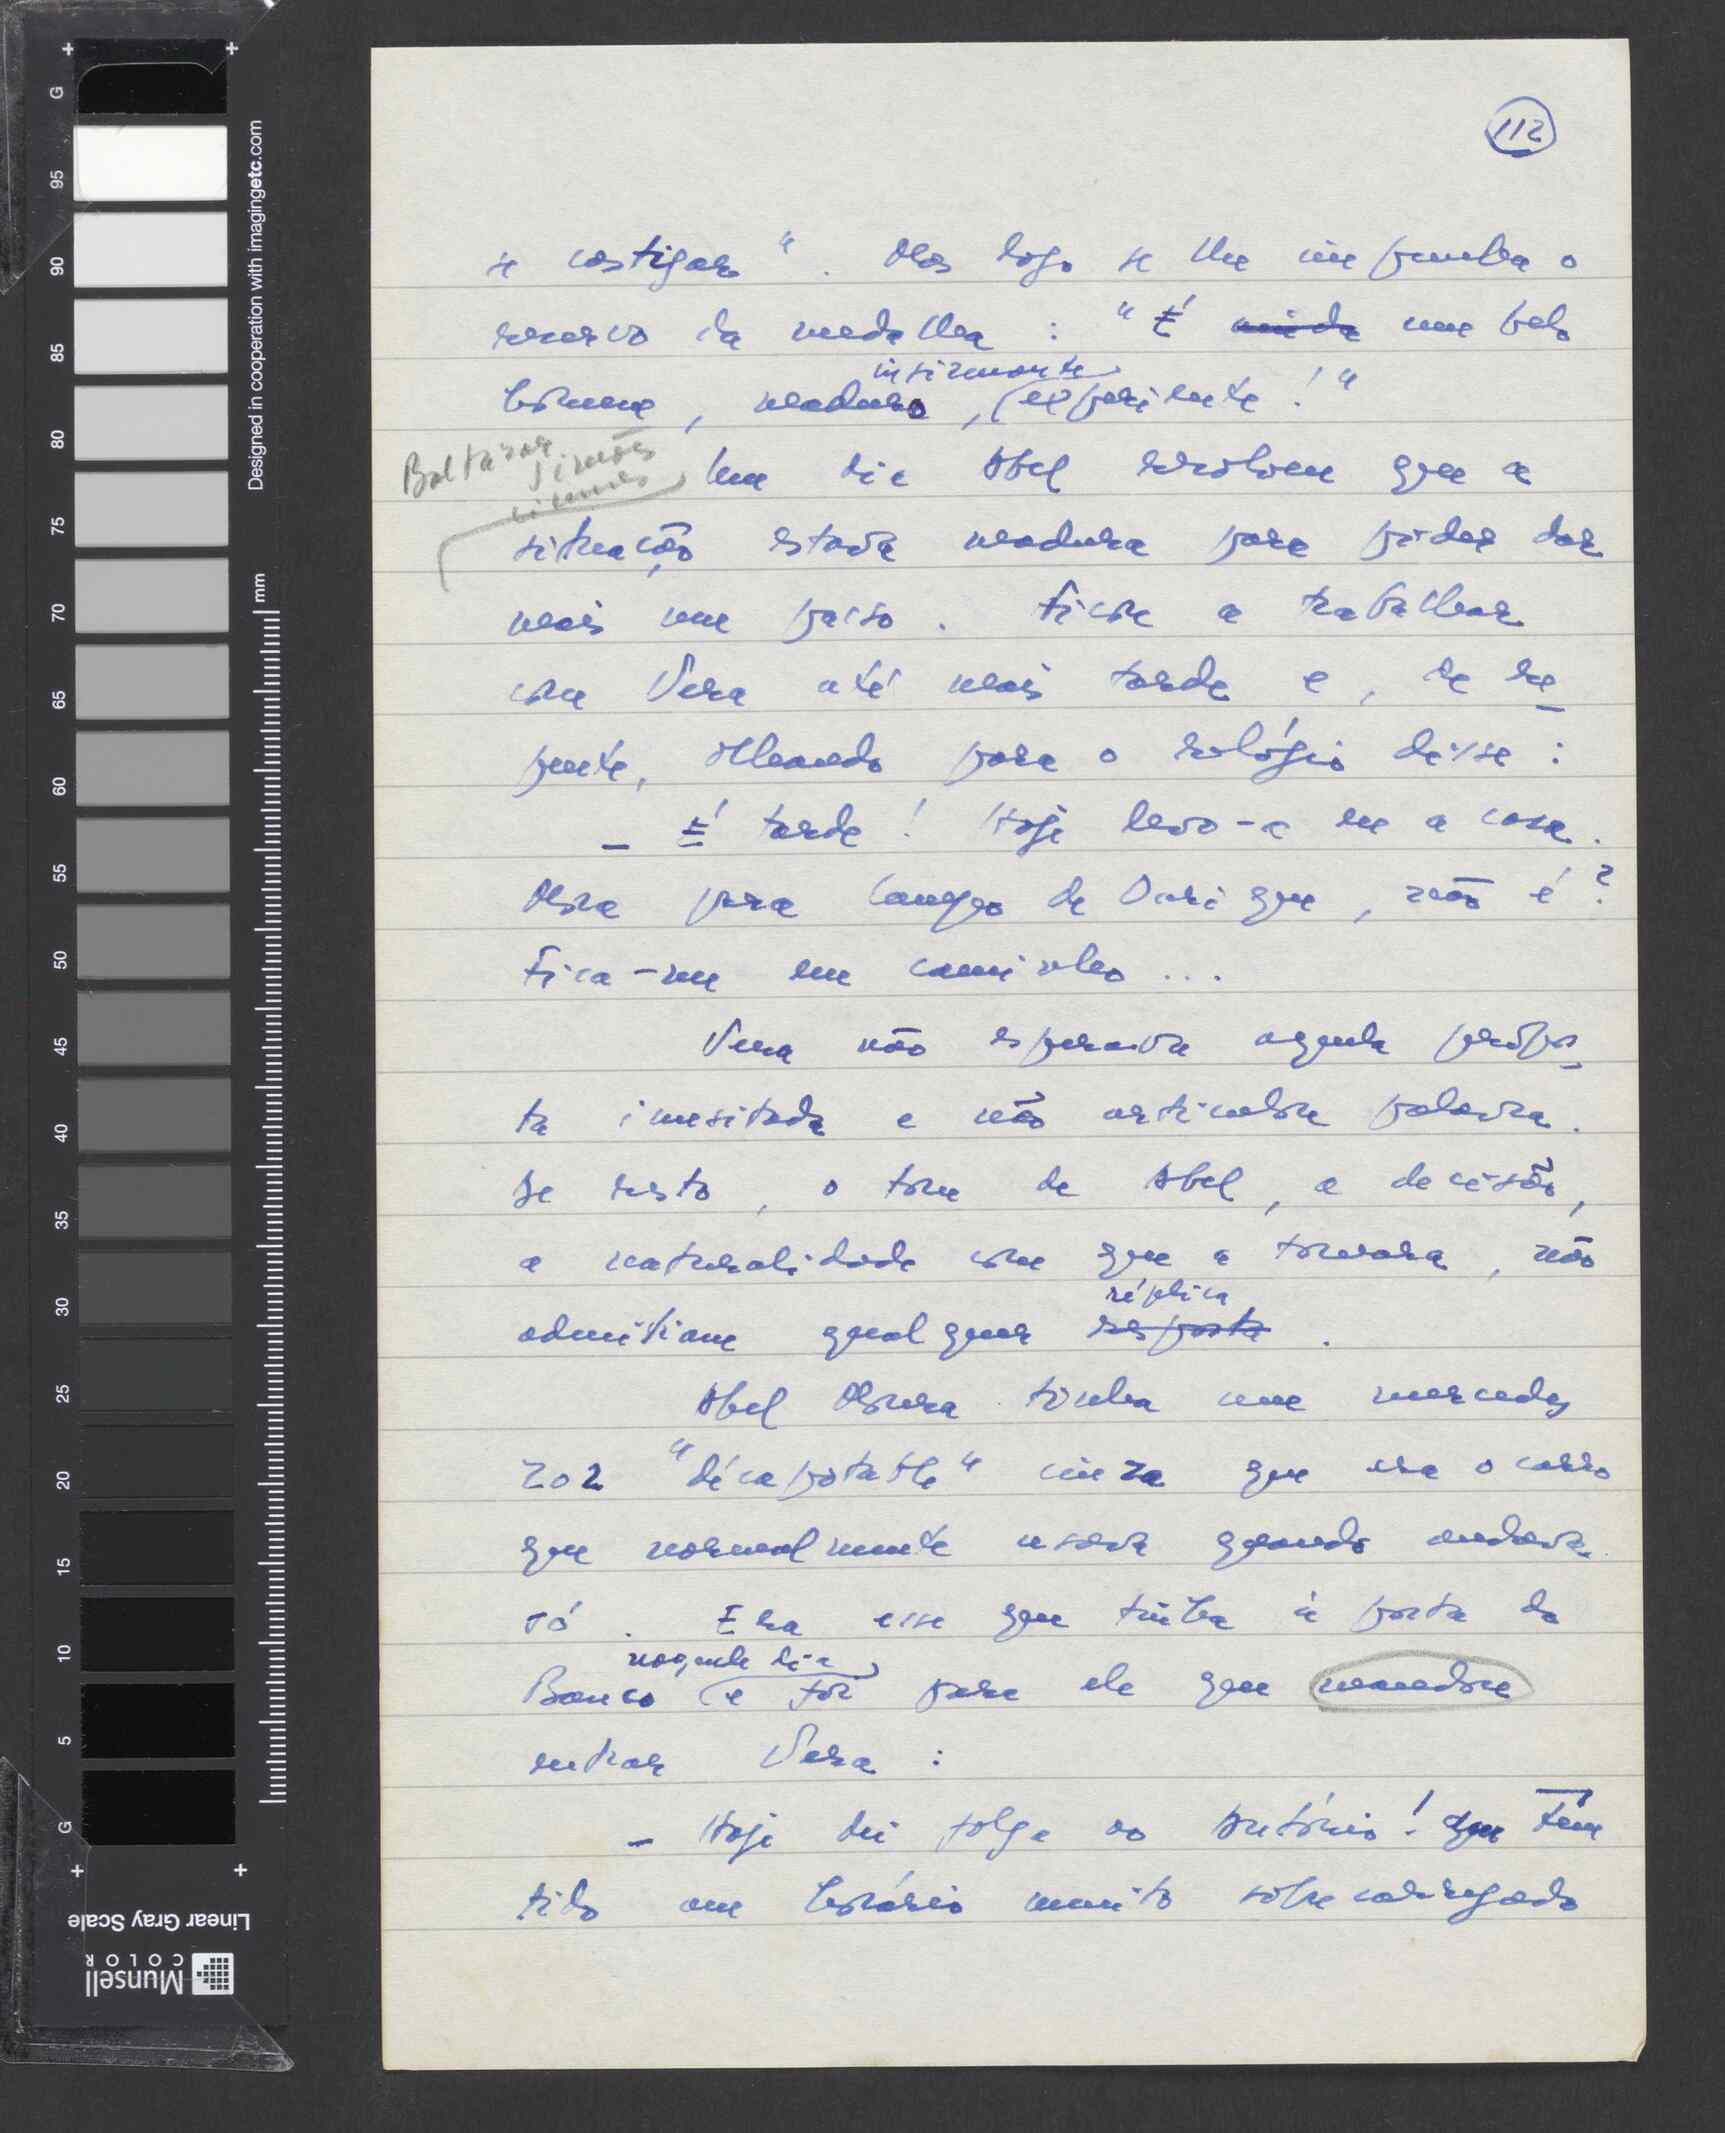 112
se castigar". Mas logo se lhe impunha o
reverso da medalha: "É ainda um belo
insinuante
homem, maduro, experiente!"
Baltazar
Simões
ciumes
Um dia Abel resolveu que a
situação estava madura para poder dar
mais um passo. Ficou a trabalhar
com Vera até mais tarde e, de re-
pente, olhando para o relógio disse:
- É tarde! Hoje levo-a eu a casa.
Mora para Campo de Ourique, não é?
Fica-me em caminho...
Vera não esperava aquela propos-
ta inusitada e não articulou palavra.
De resto, o tom de Abel, a decisão,
a naturalidade com que a tomara, não
réplica
admitiam qualquer resposta.
Abel Moura tinha um mercedes
202 "décapotable" cinza que era o carro
que normalmente usava quando andava
só. Era esse que tinha à porta do
naquele dia
Banco e foi para ele que mandou
entrar Vera:
- Hoje dei folga ao António! Que têm
tido um horário muito sobrecarregado
Designed in cooperation with imagingetc.com
mm
G
95
90
85
80
75
70
65
60
55
50
45
40
35
30
25
20
15
10
5
G
Linear Gray Scale
Munsell
COLOR